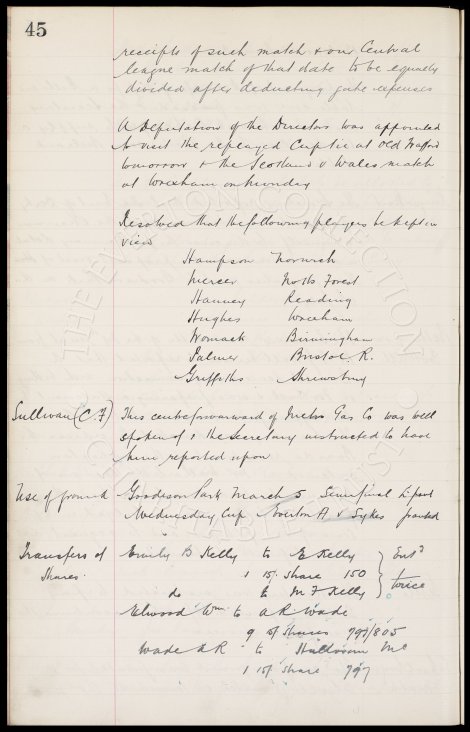 45
receipts of such match & our Central
league match of that date to be equally
divided after deducting gate expenses
A Deputation of the Directors was appointed
to visit the replayed Cup tie at Old Trafford
tomorrow & the Scotland v Wales match
at Wrexham on Monday
Resolved that the following players be kept in
view
Hampson Norwich
Mercer Notts Forest
Hanney Reading
Hughes Wrexham
Womack Birmingham
Palmer Bristol R.
Griffiths Shrewsbury
Sullivan (C.F) This centreforward of Metro Gas Co was well
spoken of & the Secretary instructed to have
him reported upon
Use of ground Goodison Park March 5 Semifinal L'pool
Wednesday Cup Everton A v Sykes granted
Transfers of Emily B Kelly to E Kelly Entd
Shares. 1 15/- share 150 twice
do to M F Kelly
Elwood Wm to A R Wade
9 15/- shares 797/805
Wade A R to
1 15/- share 797
THE EVERTON COLLECTION
CHARITABLE TRUST